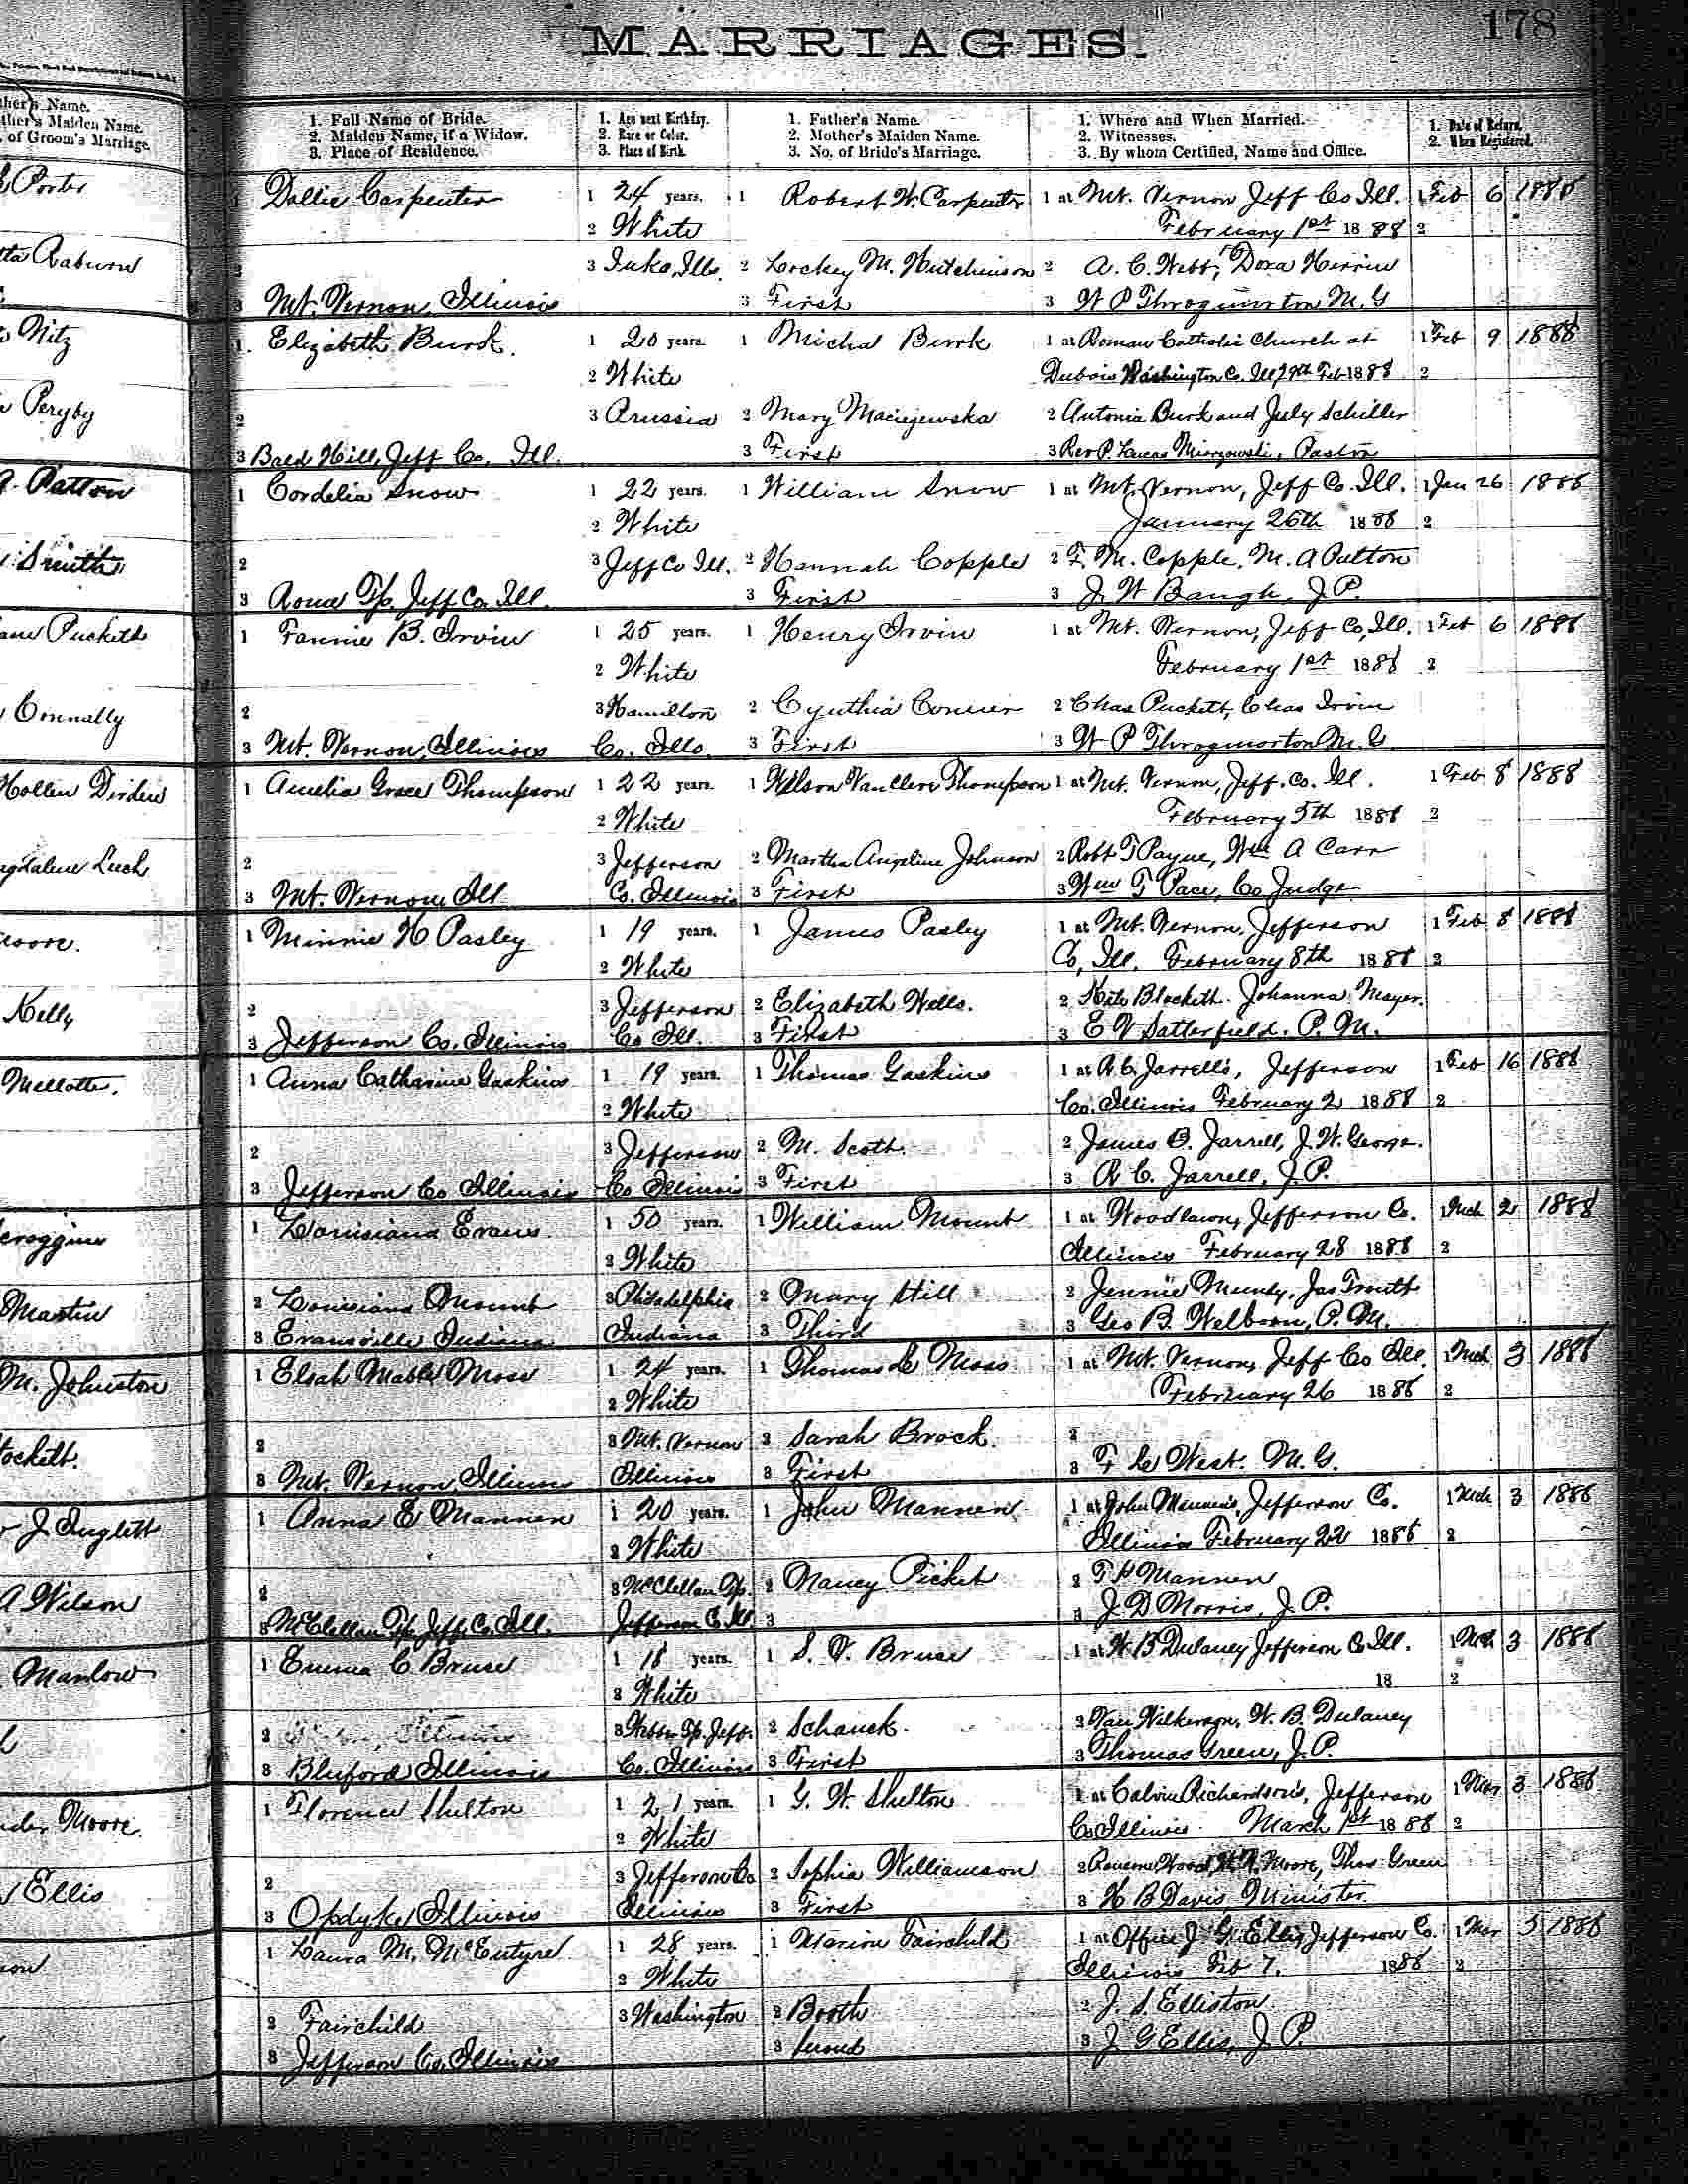 178
MARRIAGES.
ther's Name.
ther's Maiden Name.
of Groom's Marriage.
1. Full Name of Bride.
2. Maiden Name, if a Widow.
3. Place of Residence.
1. Age next Birthday.
2. Race or Color.
3. Place of Birth.
1. Father's Name.
2. Mother's Maiden Name.
3. No. of Bride's Marriage.
1. Where and When Married.
2. Witnesses.
3. By whom Certified, Name and Office.
1. Date of Return.
2. When Registered.
Porter
1 Dollie Carpenter 1 24 years. 1 Robert W. Carpenter 1 at Mt. Vernon Jeff Co Ill. 1 Feb 6 1888
2 White February 1st 1888 2
Raburn
2 3 Iuka, Ills. 2 Lockey M. Hutchinson 2 A. C. Webb, Dora Herrin
3 Mt. Vernon, Illinois 3 First 3 W P Throgmorton M. G
Nitz
1. Elizabeth Burk. 1 20 years. 1 Micha Burk 1 at Roman Catholic Church at 1 Feb 9 1888
2 White Dubois Washington Co. Ill 7th Feb 1888 2
Peryby
2 3 Prussia 2 Mary Maciejewska 2 Antonia Burk and July Schiller
3 Bald Hill, Jeff Co. Ill. 3 First 3 Rev P. Lucas Mierzowski, Pastor
Patton
1 Cordelia Snow 1 22 years. 1 William Snow 1 at Mt. Vernon, Jeff Co. Ill. 1 Jan 26 1888
2 White January 26th 1888 2
Smith
2 3 Jeff Co Ill. 2 Hannah Copple 2 F. M. Copple, M. A Patton
3 Rome Tp, Jeff Co, Ill. 3 First 3 J. W Baugh, J. P.
Puckett
1 Fannie B. Irvin 1 25 years. 1 Henry Irvin 1 at Mt. Vernon, Jeff Co, Ill. 1 Feb 6 1888
2 White February 1st 1888 2
Connally
2 3 Hamilton 2 Cynthia Conner 2 Chas Puckett, Chas Irvin
3 Mt. Vernon, Illinois Co. Ills. 3 First 3 W P Throgmorton M. G.
Hollen Dirden
1 Amelia Grace Thompson 1 22 years. 1 Wilson VanCleve Thompson 1 at Mt. Vernon, Jeff. Co. Ill. 1 Feb 8 1888
2 White February 5th 1888 2
2 3 Jefferson 2 Martha Angeline Johnson 2 Robt T Payne, Wm A Carr
3 Mt. Vernon, Ill Co. Illinois 3 First 3 Wm T Pace, Co Judge
Moore.
1 Minnie H Pasley 1 19 years. 1 James Pasley 1 at Mt. Vernon, Jefferson 1 Feb 8 1888
2 White Co, Ill. February 8th 1888 2
Kelly
2 3 Jefferson 2 Elizabeth Wells. 2 Johanna Mayer.
3 Jefferson Co. Illinois Co Ill. 3 First 3 E V Satterfield. P. M.
Mellotte.
1 Anna Catharine Gaskins 1 19 years. 1 Thomas Gaskins 1 at R. C. Jarrell's, Jefferson 1 Feb 16 1888
2 White Co. Illinois February 2 1888 2
2 3 Jefferson 2 M. Scott. 2 James B. Jarrell, J. W. George.
3 Jefferson Co Illinois Co Illinois 3 First 3 R C. Jarrell, J. P.
Scroggins
1 Louisiana Evans 1 50 years. 1 William Mount 1 at Woodlawn, Jefferson Co. 1 Mch 2 1888
2 White Illinois February 28 1888 2
Martin
2 Louisiana Mount 3 Philadelphia 2 Mary Hill 2 Jennie Mundy, Jas Trouth
3 Evansville Indiana Indiana 3 Third 3 Geo B. Welborn, P. M.
M. Johnston
1 Elsah Mable Moss 1 24 years. 1 Thomas L Moss 1 at Mt. Vernon, Jeff Co Ill. 1 Mch 3 1888
2 White February 26 1888 2
Lockett.
2 3 Mt. Vernon 2 Sarah Brock. 2
3 Mt. Vernon Illinois Illinois 3 First 3 F L West. M. G.
J. Inglett
1 Anna E Mannen 1 20 years. 1 John Mannen 1 at John Mannen's, Jefferson Co. 1 Mch 3 1888
2 White Illinois February 22 1888 2
A Wilson
2 3 McClellan Tp. 2 Nancy Picket 2 T H Mannen
3 McClellan Tp, Jeff. Co. Ill. Jefferson Co Ill. 3 3 J. D Morris, J. P.
Manlow
1 Emma C Bruse 1 18 years. 1 S. V. Bruse 1 at W. B Dulaney Jefferson Co Ill. 1 Mch 3 1888
2 White 18 2
2 Illinois 3 Webber Tp. Jeff. 2 Schauck. 2 Van Wilkerson, W. B. Dulaney
3 Bluford Illinois Co. Illinois 3 First 3 Thomas Green, J. P.
Moore.
1 Florence Shelton 1 21 years. 1 G. W. Shelton 1 at Calvin Richardson's, Jefferson 1 Mar 3 1888
2 White Co Illinois. March 1st 1888 2
Ellis
2 3 Jefferson Co 2 Sophia Williamson 2 Moore, Thos Green
3 Opdyke Illinois Illinois 3 First 3 H B Davis Minister
1 Laura M. McEntyre 1 28 years. 1 Marion Fairchild 1 at Office J G. Ellis, Jefferson Co. 1 Mar 5 1888
2 White Illinois Feb 7. 1888 2
2 Fairchild 3 Washington 2 Booth 2 J. S. Elliston
3 Jefferson Co, Illinois 3 Second 3 J. G Ellis, J. P.